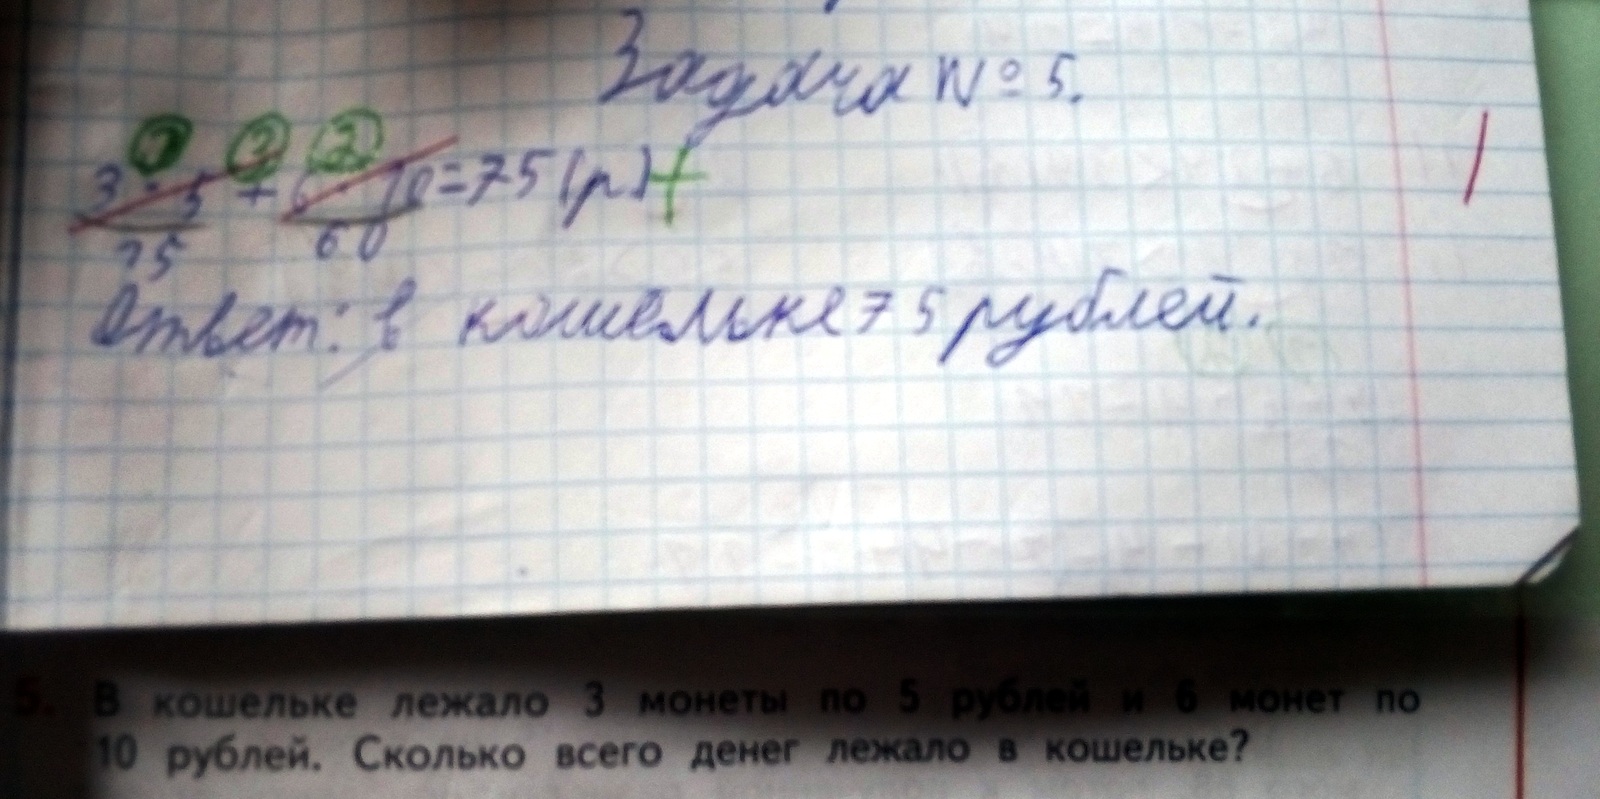 Задача № 5.
1 3 2
3 · 5 + 6 · 10 = 75 (р) +
15 60
Ответ: в кошельке 75 рублей.
5. В кошельке лежало 3 монеты по 5 рублей и 6 монет по
10 рублей. Сколько всего денег лежало в кошельке?